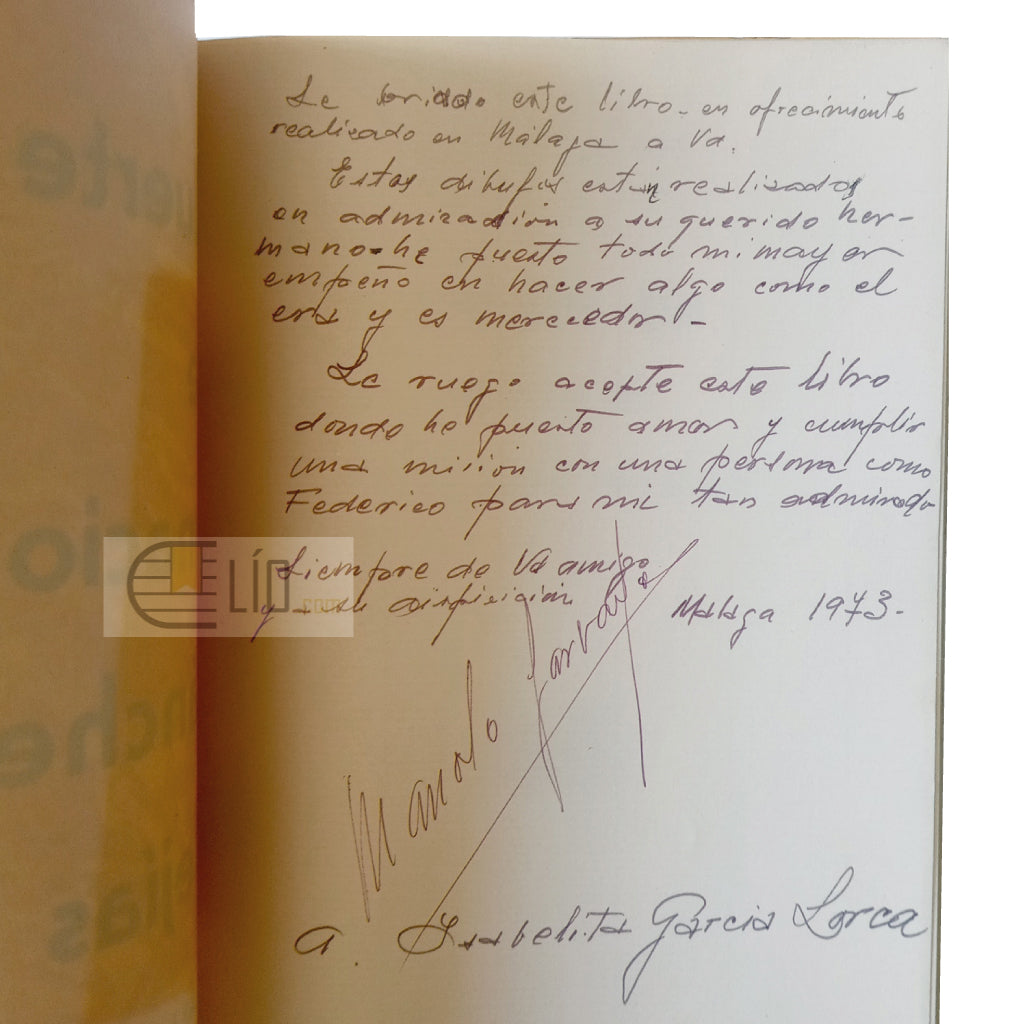 Le brindo este libro - en ofrecimiento
realizado en Málaga a Vd.
Estos dibujos están realizados
en admiración a su querido her-
mano - he puesto todo mi mayor
empeño en hacer algo como el
era y es merecedor -
Le ruego acepte este libro
donde he puesto amor y cumplir
una misión con una persona como
Federico para mi tan admirado
Siempre de Vd amigo
y a su disposición
Málaga 1973-
Manolo
a. Isabelita García Lorca
ELÍA
uerte
nche
ejías